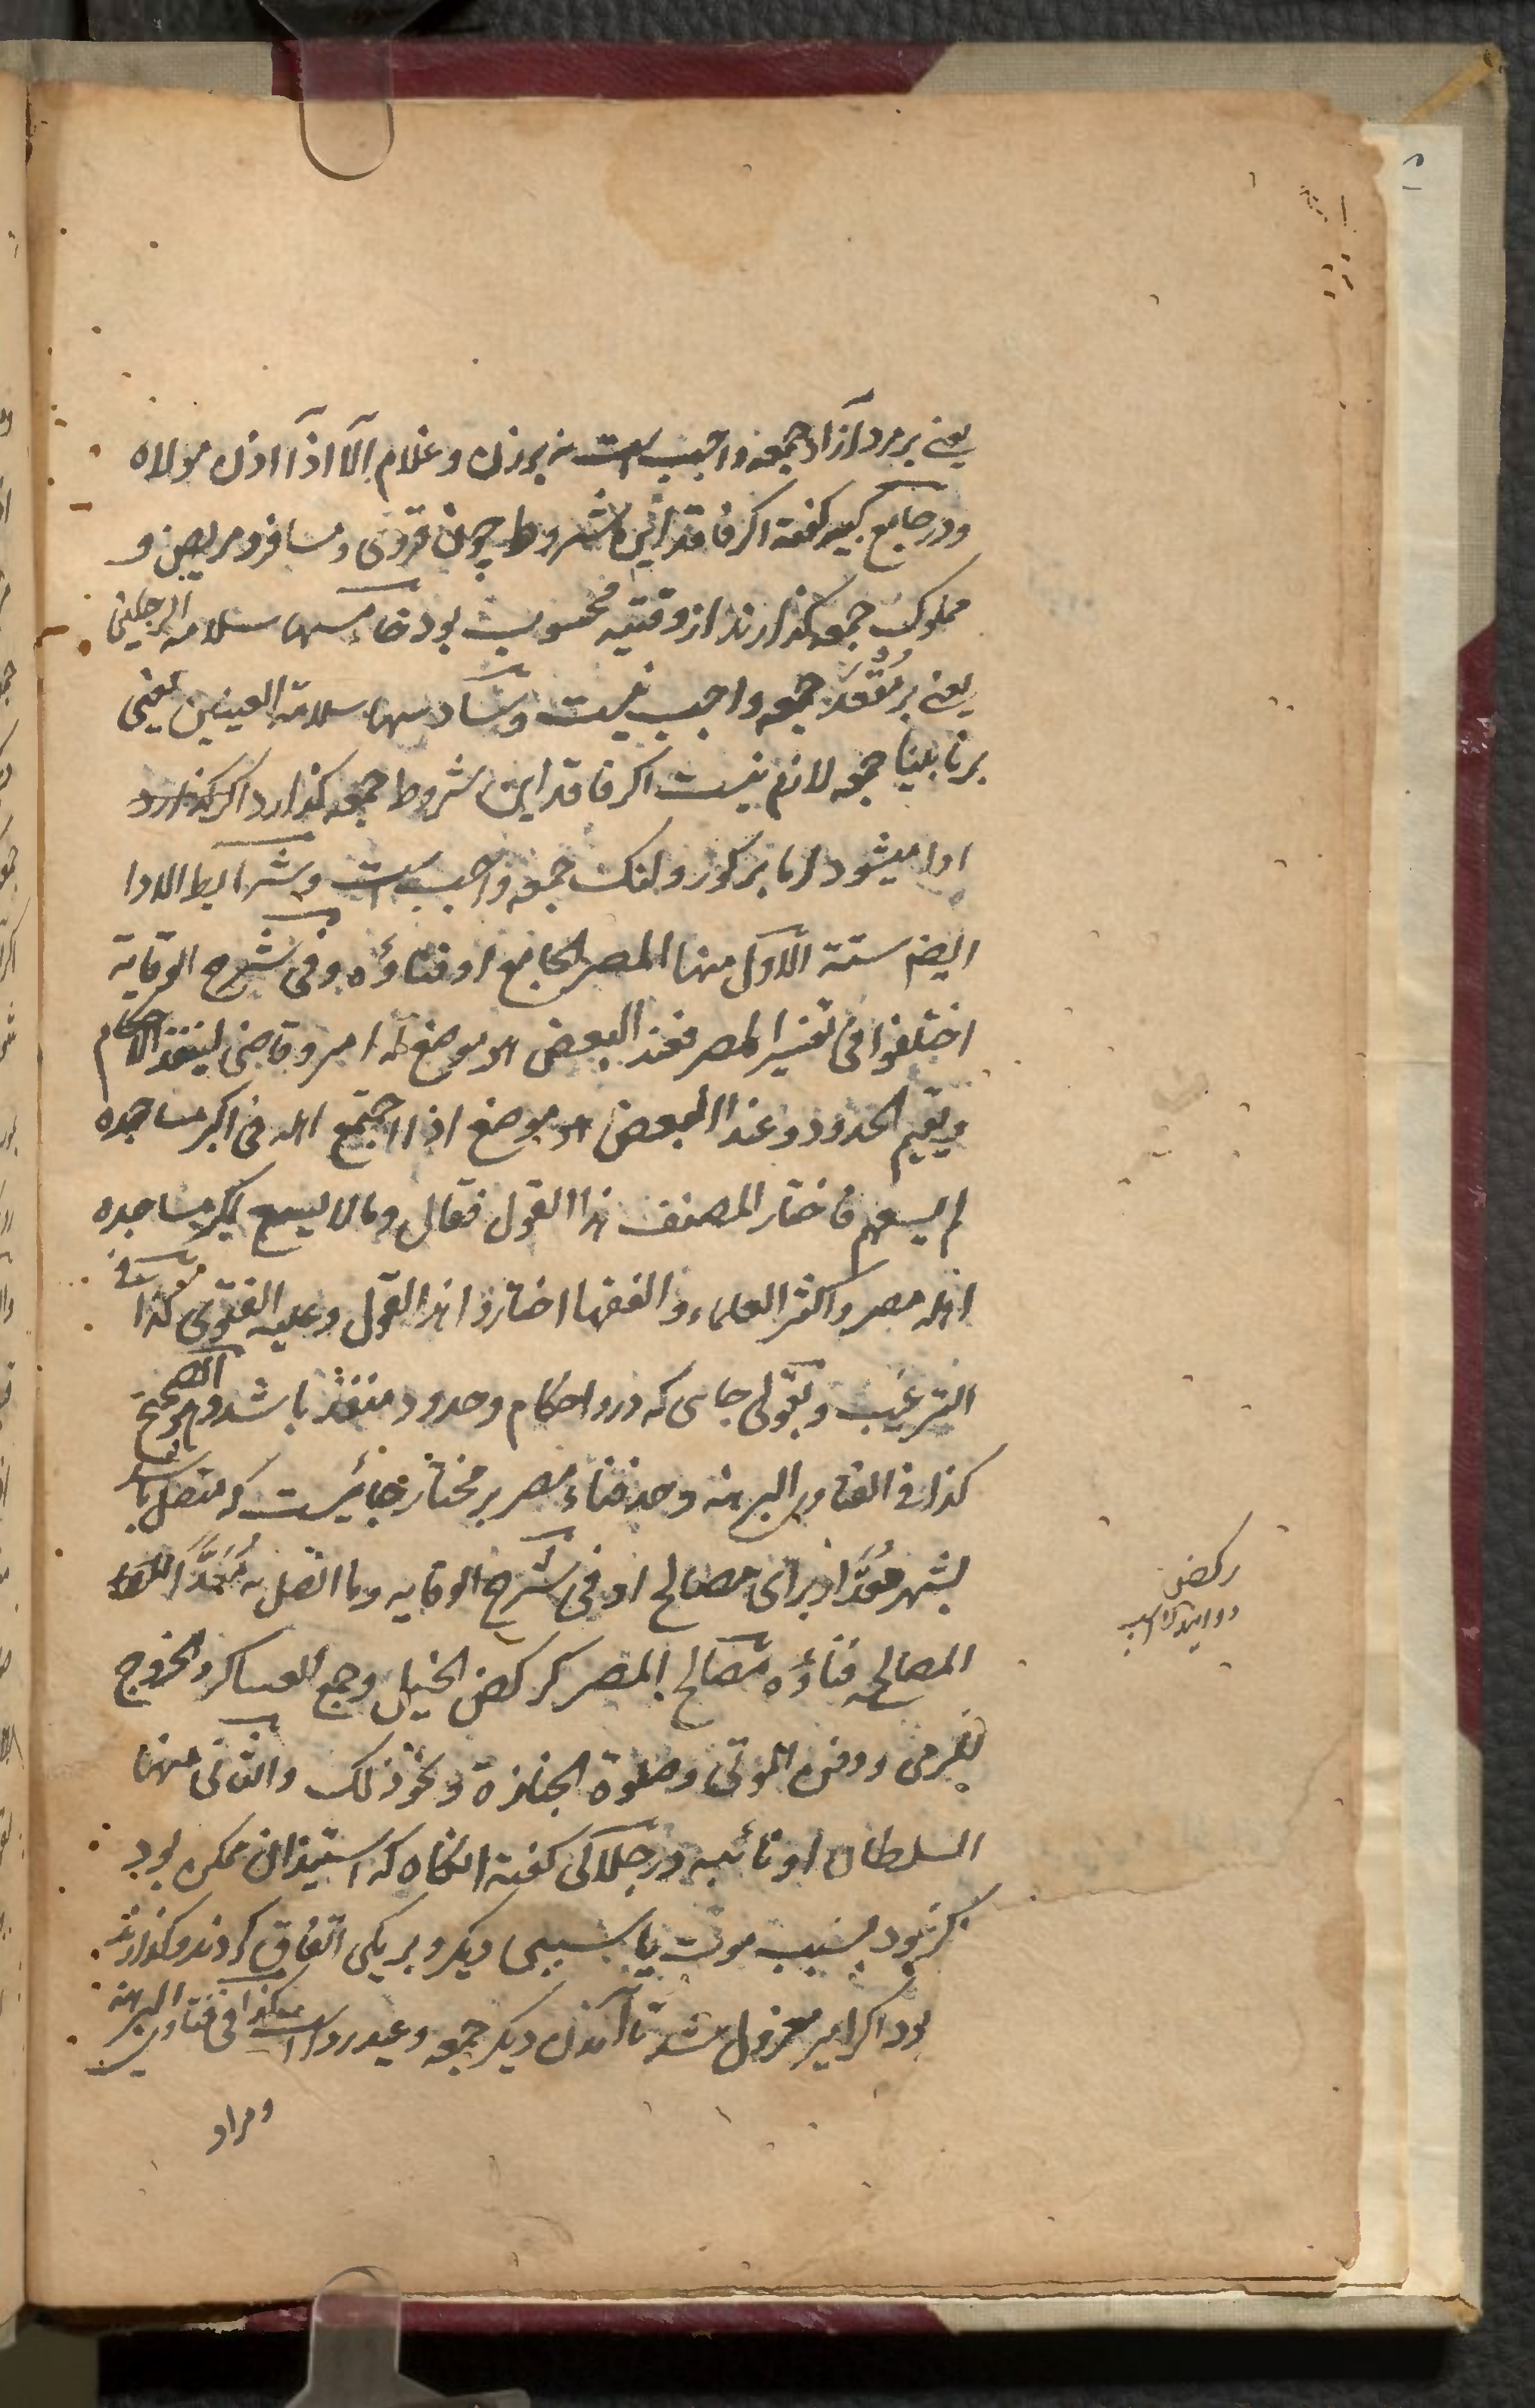 یعنے بر مرد آزاد جمعه واجب است نه بر زن و غلام الّا اذا اذن مولاه
و در جامع کبیر گفته اگر فاقد این شروط چون قروی و مسافر و مریض و
مملوک جمعه گذارند از وقتیه محسوب بود خامسها سلامة الرجلین
یعنے بر مُقْعَد جمعه واجب نیست و سادسها سلامة العینین یعنی
بر نابینا جمعه لازم نیست اگر فاقد این شروط جمعه گذارد اگر گذارد
ادا میشود اما بر کور و لنگ جمعه واجب است و شرایط الادا
ایضم ستة الاول منها المصر الجامع او فناؤه و فی شرح الوقایه
اختلفوا فی تفسیر المصر فعند البعض هو موضع له امیر و قاضی لینفذ الاحکام
و یقیم الحدود و عند البعض هو موضع اذا اجتمع اهله فی اکبر مساجده
لم یسعهم فاختار المصنف هذا القول فقال و ما لا یسع اکبر مساجده
اهله مصر و اکثر العلماء و الفقها اختاروا هذا القول و علیه الفتوی کذا فی
الترغیب و بقولی جای که درو احکام و حدود منفذ باشد و هو الصحیح
کذا فی الفتاوی البرهنه و حد فناء مصر بر مختار جائیست که متصل باشد
بشهر مُعَدًّا از برای مصالح او فی شرح الوقایه و ما اتصل به مُعَدًّا
المصالحه فناؤه مصالح المصر کرکض الخیل و جمع العساکر و الخروج
للرمی و دفن الموتی و صلوة الجنازة و نحو ذلک و الثانی منها
السلطان او نائبه در جلالی گفته انگاه که استیذان ممکن بود
گر نبود بسبب موت یا سببی دیگر و بر یکی اتفاق کردند و گذاردند
بود اگر امیر معزول شد تا آمدن دیگر جمعه و عید رواست کذا فی فتاوی البرهنه
و مراد
رکض
دوانیدن اسب